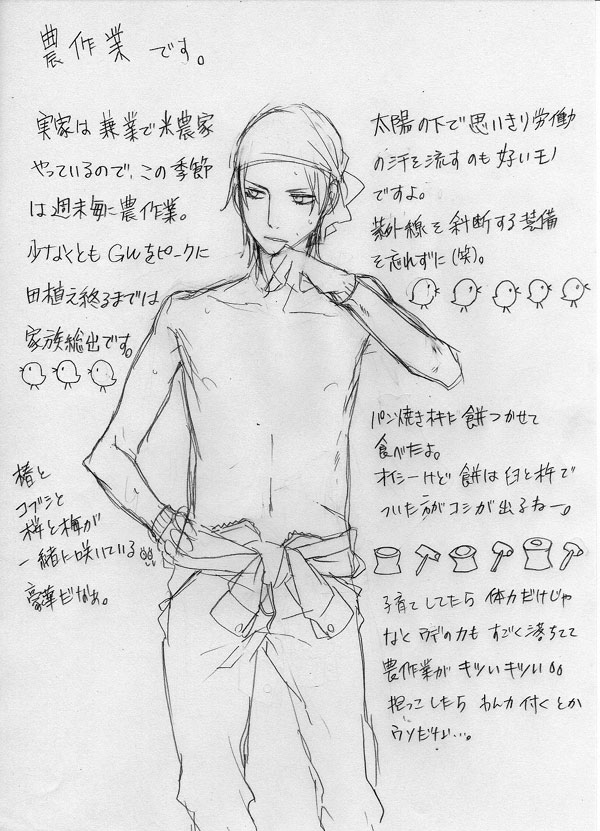 農作業 です。
実家は兼業で米農家
やっているので、この季節
は週末毎に農作業。
少なくともGWをピークに
田植え終るまでは
家族総出です。
椿と
コブシと
桜と梅が
一緒に咲いている
豪華だなぁ。
太陽の下で思いきり労働
の汗を流すのも好いモノ
ですよ。
紫外線を斜断する装備
を忘れずに(笑)。
パン焼き杵に餅つかせて
食べたよ。
オイシーけど餅は臼と杵で
ついた方がコシが出るねー。
子育てしてたら体力だけじゃ
なくウデの力もすごく落ちてて
農作業がキツいキツい
抱っこしたらわん力付くとか
ウソだわ…。